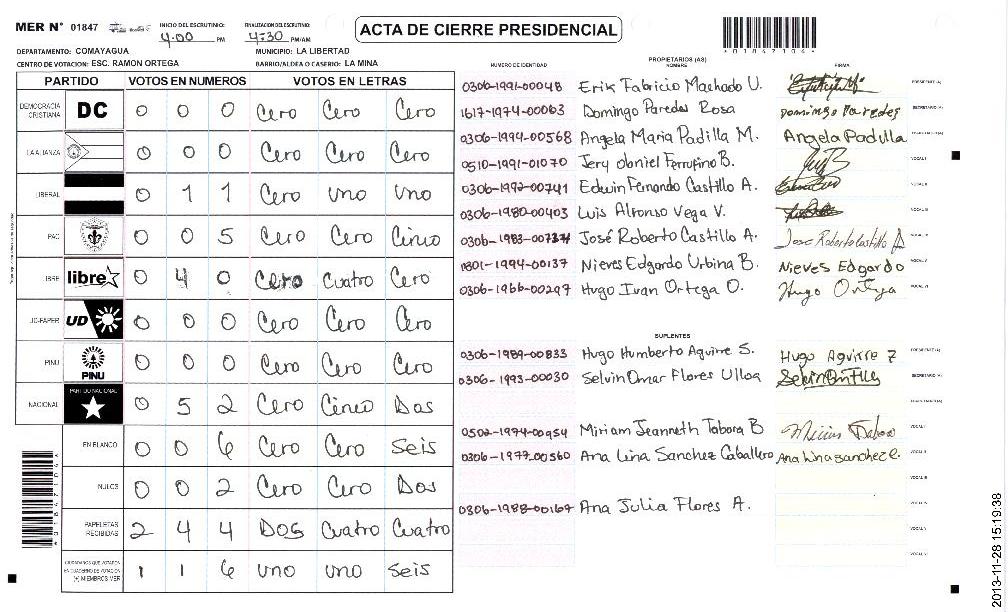 MER N° 01847
INICIO DEL ESCRUTINIO: 4:00 PM
FINALIZACION DEL ESCRUTINIO: 4:30 PM/AM
ACTA DE CIERRE PRESIDENCIAL
DEPARTAMENTO: COMAYAGUA
MUNICIPIO: LA LIBERTAD
CENTRO DE VOTACION: ESC. RAMON ORTEGA
BARRIO/ALDEA O CASERIO: LA MINA
PARTIDO VOTOS EN NUMEROS VOTOS EN LETRAS
DEMOCRACIA CRISTIANA DC 0 0 0 Cero Cero Cero
LA ALIANZA 0 0 0 Cero Cero Cero
LIBERAL 0 1 1 Cero uno uno
PAC 0 0 5 Cero Cero Cinco
LIBRE libre 0 4 0 Cero Cuatro Cero
UD-FAPER UD 0 0 0 Cero Cero Cero
PINU PINU 0 0 0 Cero Cero Cero
NACIONAL PARTIDO NACIONAL 0 5 2 Cero Cinco Dos
EN BLANCO 0 0 6 Cero Cero Seis
NULOS 0 0 2 Cero Cero Dos
PAPELETAS RECIBIDAS 2 4 4 Dos Cuatro Cuatro
CIUDADANOS QUE VOTARON EN CUADERNO DE VOTACION (+) MIEMBROS MER 1 1 6 uno uno seis
PROPIETARIOS (AS)
NUMERO DE IDENTIDAD NOMBRE FIRMA
0306-1991-00048 Erik Fabricio Machado U. PRESIDENTE (A)
1617-1974-00063 Domingo Paredes Rosa Domingo Paredes SECRETARIO (A)
0306-1994-00568 Angela Maria Padilla M. Angela Padilla
0510-1991-01070 Jery Daniel Ferrufino B. VOCAL I
0306-1992-00741 Edwin Fernando Castillo A. VOCAL II
0306-1980-00403 Luis Alfonso Vega V. VOCAL III
0306-1983-00737 José Roberto Castillo A. Jose Roberto Castillo A
1801-1994-00137 Nieves Edgardo Urbina B. Nieves Edgardo VOCAL V
0306-1966-00297 Hugo Ivan Ortega O. Hugo Ortega VOCAL VI
SUPLENTES
0306-1989-00833 Hugo Humberto Aguirre S. Hugo Aguirre PRESIDENTE (A)
0306-1993-00030 Selvin Omar Flores Ulloa SECRETARIO (A)
0502-1974-00954 Miriam Jeanneth Tabora B VOCAL I
0306-1977-00560 Ana Lina Sanchez Caballero Ana Lina Sanchez C. VOCAL II
VOCAL III
0306-1988-00167 Ana Julia Flores A.
VOCAL V
VOCAL VI
2013-11-28 15:19:38